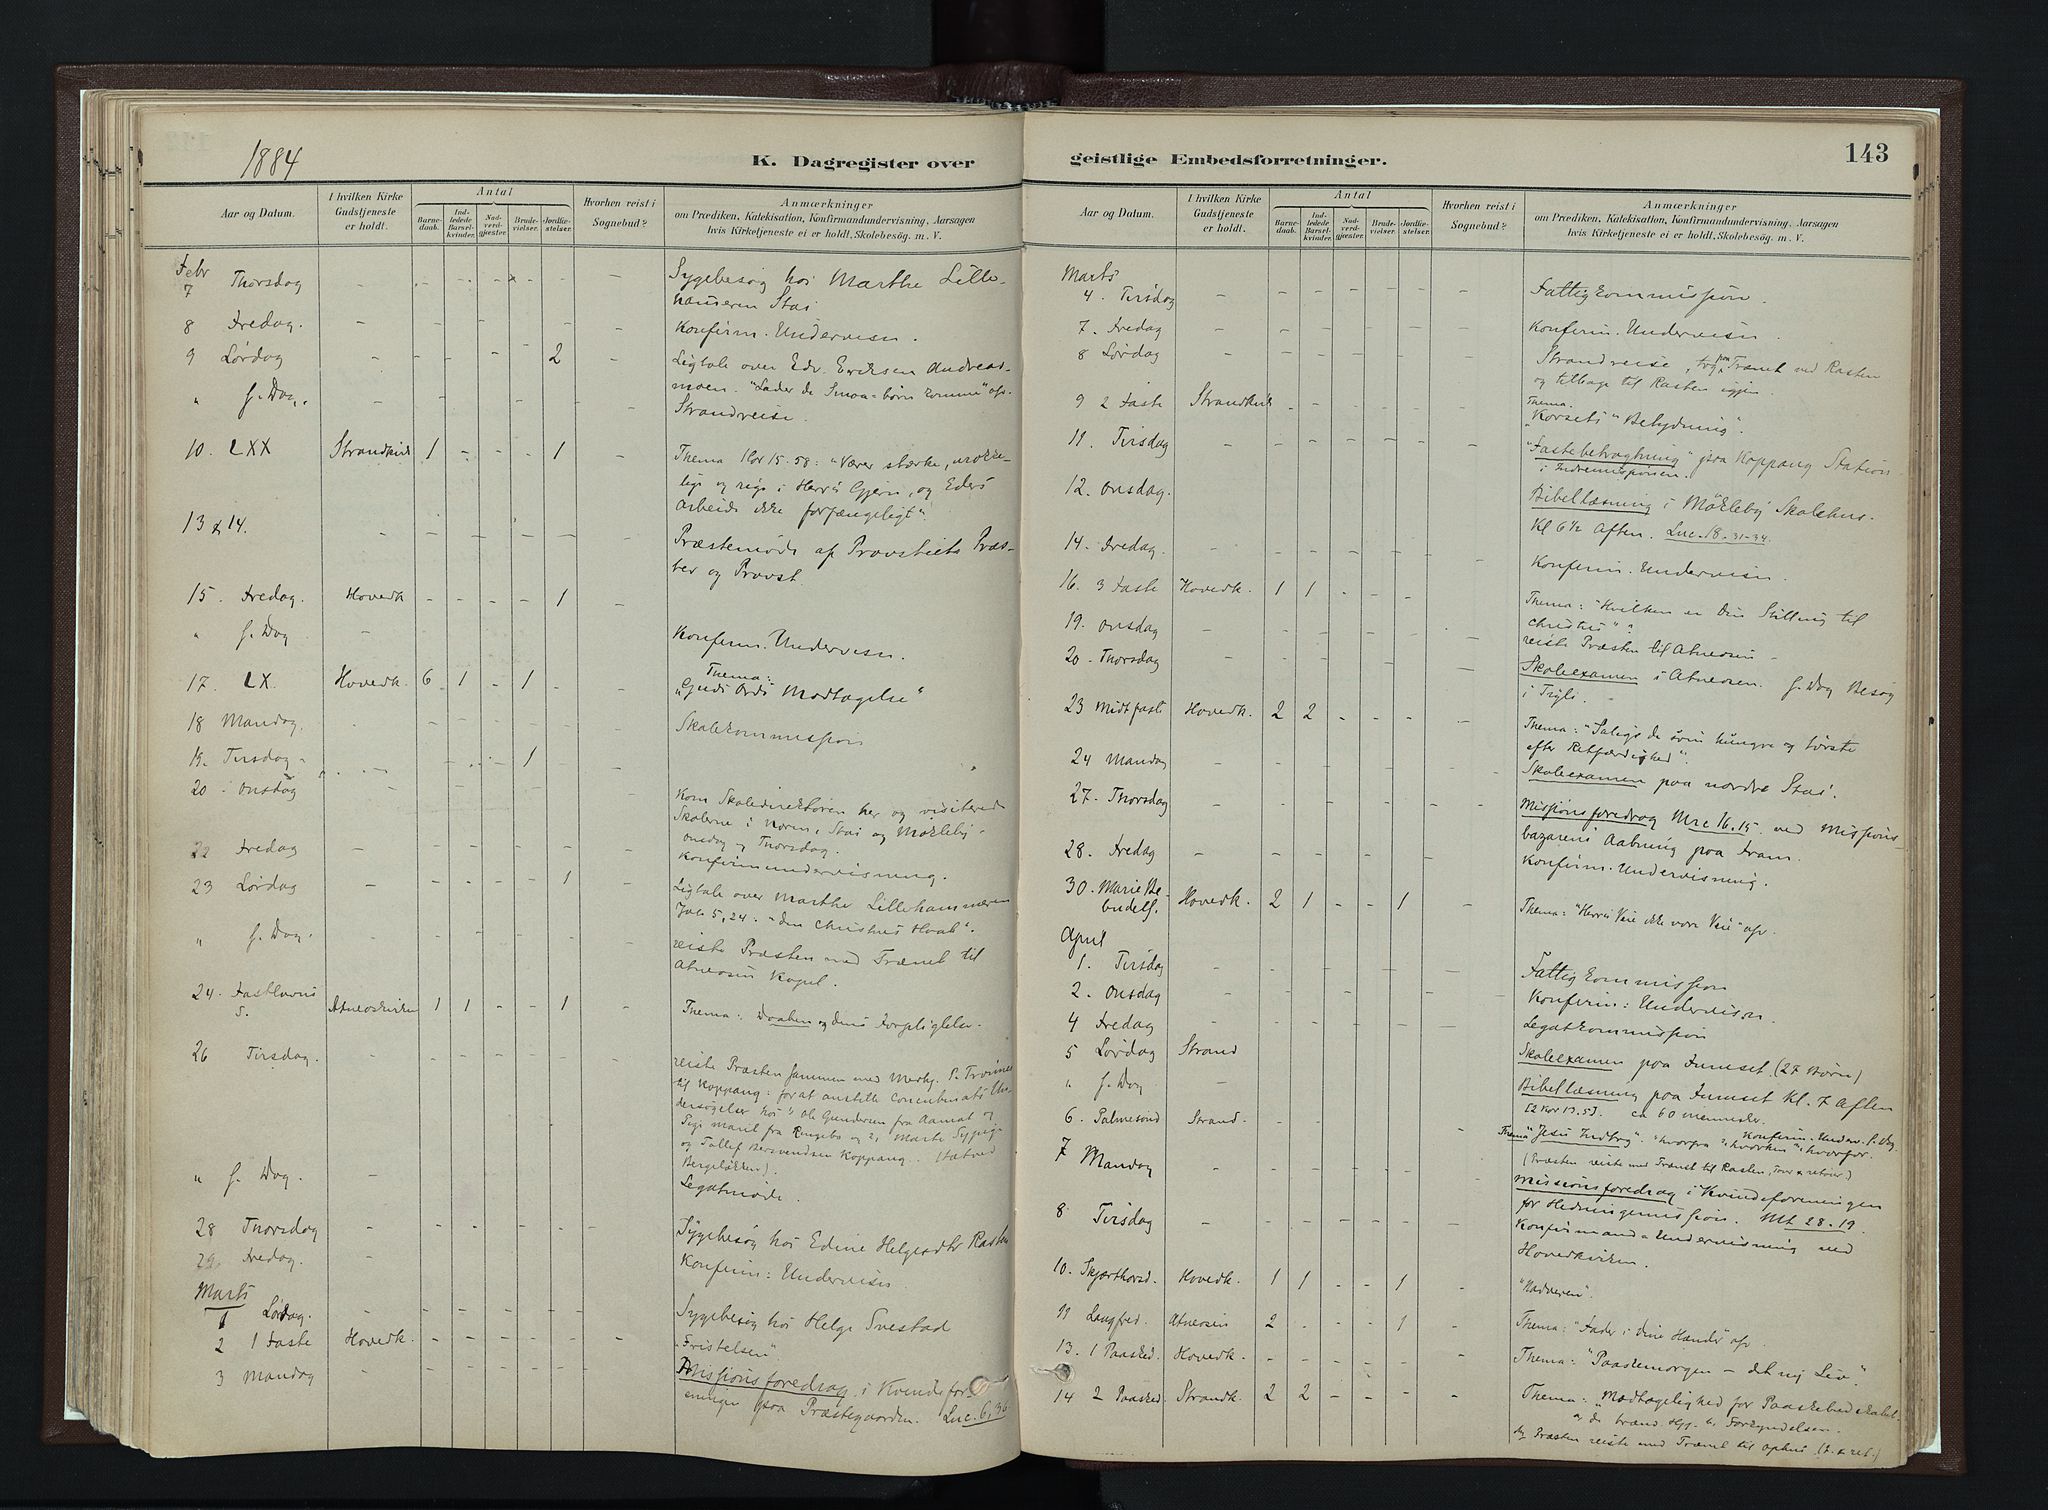 1884
K. Dagregister over
Aar og Datum.
I hvilken Kirke
Gudstjeneste
er holdt.
Antal
Barne-
daab.
Ind-
ledede
Barsel-
kvinder.
Nad-
verd-
gjæster.
Brude-
vielser.
Jordfæ-
stelser.
Hvorhen reist i
Sognebud?
Anmærkninger
om Prædiken, Katekisation, Konfirmandundervisning, Aarsagen
hvis Kirketjeneste ei er holdt, Skolebesög. m. V.
Febr
7 Thorsdag - - - - - - Sygebesøg hos Marthe Lille-
hammeren Stai
8 Fredag. - - - - - - - Konfirm. Undervisn.
9 Lørdag - - - - 2 - Ligtale over Edv. Eriksen Andreas-
moen. "Lader de Smaa-børn komme" osv.
" s. Dag. - - - - - - Strandreise.
10. LXX Strandkirk 1 - - - 1 - Thema 1 Cor 15.58: "Værer stærke, urokke-
lige og rige i Herrens Gjern., og Eders
Arbeide ikke forfængeligt".
13 & 14. - - - - - - Præstemøde af Provstiets Præs-
ter og Provst.
15. Fredag. Hovedk - - - - 1 -
" s. Dag - Konfirm. Undervisn.
17. LX. Hovedk. 6 1 - 1 - - Thema:
"Guds Ords Modtagelse"
18 Mandag - - - - - Skolekommission
19. Tirsdag - - - - 1
20. Onsdag - - - - - Kom Skoledirektøren her og visiterede
Skolerne i Noren, Stai og Møkleby -
Onsdag og Thorsdag.
22 Fredag - - - - - Konfirmundervisning.
23 Lørdag - - - - 1 - Ligtale over Marthe Lillehammeren
5,24. "den Christnes Haab".
" s. Dag. - - - - - reiste Præsten med Trænet til
Atneosen Kapel.
24. Fastelavns
S. Atneoskirken 1 1 - - 1 - Thema: Daaben og dens Forpligtelse.
26 Tirsdag. - - - - - - reiste Præsten sammen med Medhj. P. Trønnes
til Koppang: for at anstille Concubinats Un-
dersøgelser hos Ole Gundersen fra Aamot og
maril fra Ringebo og 2, Marte
og Tollef Bersvendsen Koppang.
).
" s. Dag. - Legatmøde.
28 Thorsdag - - - - - - Sygebesøg hos Edine Helgesdtr Rasten
29 Fredag. - Konfirm: Undervisn
Marts
1 Lørdag. - - - - - - Sygebesøg hos Helge Svestad
2 1 Faste Hovedk. - - - - - - "Fristelsen".
3 Mandag - Missionsforedrag i Kvindefor-
eningen paa Præstegaarden. Luc. 6,36
geistlige Embedsforretninger.
143
Aar og Datum.
I hvilken Kirke
Gudstjeneste
er holdt.
Antal
Barne-
daab.
Ind-
ledede
Barsel-
kvinder.
Nad-
verd-
gjæster.
Brude-
vielser.
Jordfæ-
stelser.
Hvorhen reist i
Sognebud?
Anmærkninger
om Prædiken, Katekisation, Konfirmandundervisning, Aarsagen
hvis Kirketjeneste ei er holdt, Skolebesög. m. V.
Marts
4. Tirsdag - - - - - - - Fattigkommission.
7. Fredag - - - - - - - Konfirm. Undervisn.
8 Lørdag - - - - Strandreise, tog paa Trænet ved Rasten
og tilbage til Rasten igjen.
9 2 Faste Strandkirk - - - - - Thema:
"Korsets Betydning".
11. Tirsdag - - - - - - - "Fastebetragtning" paa Koppang Station
i Indremissionen.
12. Onsdag. Bibellæsning i Møkleby Skolehus.
Kl 6½ Aften. Luc. 18.31-34.
14. Fredag. - - - - - - - Konfirm. Undervisn.
16. 3 Faste Hovedk. 1 1 - - - Thema: "Hvilken er Din Stilling til
Christus"?
19. Onsdag - - - - - - - reiste Præsten til Atneosen -
20. Thorsdag - - - - - - - Skoleexamen i Atneosen. s. Dag Besøg
i .
23 Midtfaste Hovedk. 2 2 - - - - Thema: "Salige de som hungre og tørste
efter Retfærdighed".
24 Mandag - - - - - - Skoleexamen paa nordre Stai.
27. Thorsdag - - - - - - Missionsforedrag Mrc 16.15. ved Missions-
bazarens Aabning paa Fram.
28. Fredag - - - - - - Konfirm. Undervisning.
30. Marie Be-
budels. Hovedk. 2 1 - - 1 - Thema: "Herrens Veie ikke vore Veie" osv.
April
1. Tirsdag - - - - - - - Fattigkommission
2. Onsdag - - - - - Konfirm: Undervisn.
4 Fredag - - - - - - Legatkommission
5 Lørdag Strand Skoleexamen paa Furuset (27 Børn)
" s. Dag - Bibellæsning paa Furuset Kl. 7 Aften
[2 Kor 13.5]. ca 60 mennesker.
Konfirm. Underv. s. Dag.
6. Palmesønd Strand. - Thema "Jesu Indtog". "hvorfra", "hvorhen", "hvorfor".
(Præsten reiste med Trænet til Rasten, tour & retour.)
7 Mandag - - - - - - - Missionsforedrag i Kvindeforeningen
for Hedningemission. Mt. 28.19.
8 Tirsdag - - - - - - - Konfirmand-Undervisning ved
Hovedkirken.
10. Skjærthorsd. Hovedk. 1 1 - - 1 - "Nadveren".
11 Langfred. Atneosen 2 - - - 1 - Thema: "Fader i dine Hænder" osv
13. 1 Paasked. Hovedk. - - - - - - Thema: "Paaskemorgen - det ny Liv".
14 2 Paasked. Strandk. 2 2 - - - - Thema: "Modtagelighed for
Forkyndelsen.
Præsten reiste med Trænet til (t. & ret.)